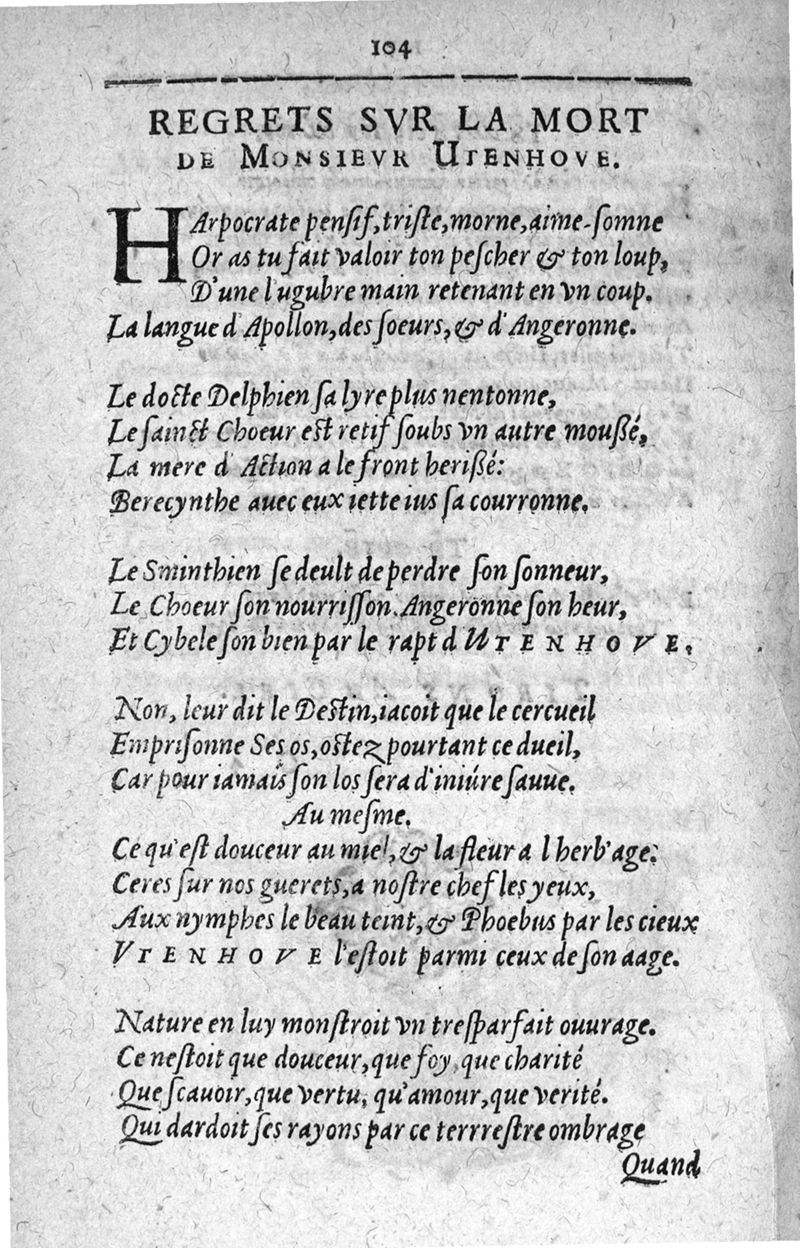 104
REGRETS SVR LA MORT
DE MONSIEVR UTENHOVE.
HArpocrate pensif, triste, morne, aime-somne
Or as tu fait valoir ton pescher & ton loup,
D'une lugubre main retenant en vn coup.
La langue d'Apollon, des soeurs, & d'Angeronne.
Le docte Delphien sa lyre plus nentonne,
Le sainct Choeur est retif soubs vn autre moußé,
La mere d'Action a le front herißé:
Berecynthe auec eux iette ius sa courronne.
Le Sminthien se deult de perdre son sonneur,
Le Choeur son nourrisson. Angeronne son heur,
Et Cybele son bien par le rapt d UTENHOVE.
Non, leur dit le Destin, iacoit que le cercueil
Emprisonne Ses os, ostez pourtant ce dueil,
Car pour iamais son los sera d'iniúre sauue.
Au mesme.
Ce qu'est douceur au miel, & la fleur a l herb'age:
Ceres sur nos guerets, a nostre chef les yeux,
Aux nymphes le beau teint, & Phoebus par les cieux
VTENHOVE l'estoit parmi ceux de son aage.
Nature en luy monstroit vn tresparfait ouurage.
Ce nestoit que douceur, que foy, que charité
Que scauoir, que vertu, qu'amour, que verité.
Qui dardoit ses rayons par ce terrrestre ombrage
Quand